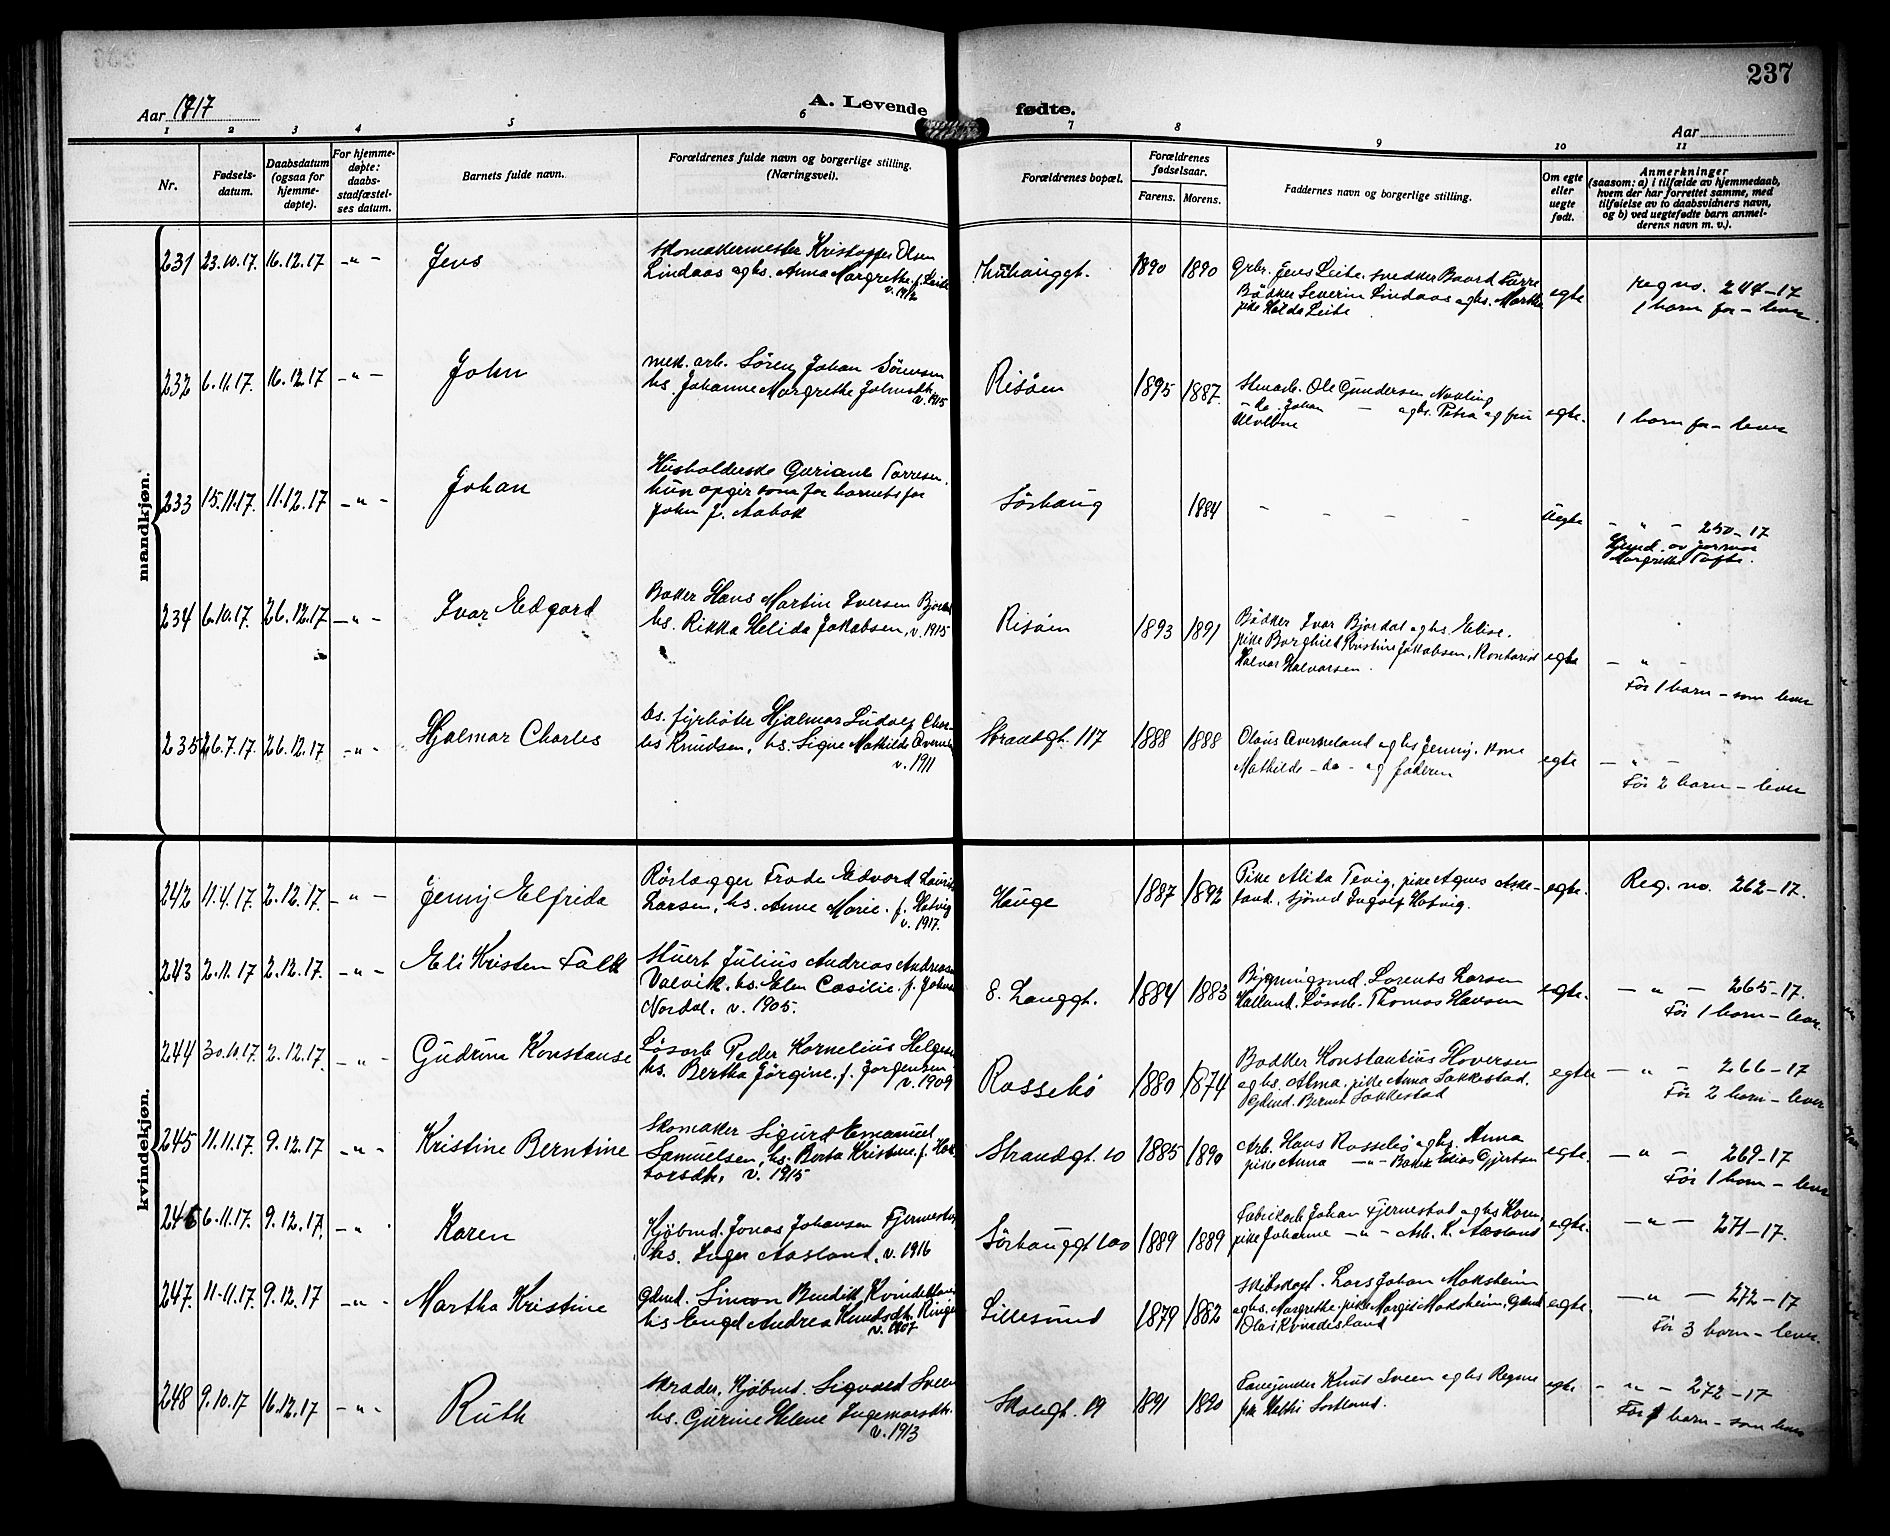 237
Aar 1917
A. Levende fødte.
Aar
1 2 3 4 5 6 7 8 9 10 11
Nr.
Fødsels-
datum.
Daabsdatum
(ogsaa for
hjemme-
døpte).
For hjemme-
døpte:
daabs-
stadfæstel-
ses datum.
Barnets fulde navn.
Forældrenes fulde navn og borgerlige stilling.
(Næringsvei).
Forældrenes bopæl.
Forældrenes
fødselsaar.
Farens. Morens.
Faddernes navn og borgerlige stilling.
Om egte
eller
uegte
født.
Anmerkninger
(saasom: a) i tilfælde av hjemmedaab,
hvem der har forrettet samme, med
tilføielse av to daabsvidners navn,
og b) ved uegtefødte barn anmel-
derens navn m. v.).
mandkjøn.
231 23.10.17. 16.12.17 - " - Jens
Skomakermester Kristoffer Olsen
Lindaas og hs. Anna Margrethe f. Leite
v. 1912
1890 1890
Grbr. Jens Leite. Snedker Baard Farre
Bödker Severin Lindaas og hs. Marthe
pike Hulda Leite
egte
reg no. 244-17
1 barn før - lever.
232 6.11.17. 16.12.17 - " - John
mek. arb. Sören Johan Sörensen
hs. Johanne Margrethe Johnsdt.
v. 1915
Risöen 1895 1887.
Stenarb. Ole Gundersen
- do. Johan - og hs. Petra og fru
egte.
1 barn før - lever
233 15.11.17. 11.12.17 - " - Johan
Husholderske Guriane Torresen.
hun opgir som far barnets far
John J. Aabok
Sörhaug 1884
- - - -
Uegte
- " - 250-17
Hjemd. av jormor
Margrethe Tofte.
234 6.10.17. 26.12.17 - " - Ivar Edgard
Baker Hans Martin Iversen
hs. Rikka Helida Jakobsen, v. 1915
Risöen 1893 1891
Bödker Ivar Bjordal og hs. Elise.
pike Borghild Kristine Jakobsen, Kontorist
Halvor Halvorsen.
egte
- " -
För 1 barn - som lever
235 26.7.17. 26.12.17 - " - Hjalmar Charles
hs. fyrböter Hjalmar Ludolf Char-
les Knudsen, hs. Signe Mathilde
v. 1911
Strandgt. 117 1888 1888
Olaus Averneland og hs Jenny. Kone
Mathilde - do - og faderen
egte
- " -
För 2 barn - lever
kvindekjøn.
242 11.4.17. 2.12.17. - " - Jenny Elfrida
Rörlægger Frode Edvard
Larsen, hs. Anne Marie. f. Hatvig
v. 1917.
Hauge 1887 1892
Pike Alida Tevig, pike Agnes Aske-
land, sjömd Ingolf Hatvig.
egte.
Reg. no. 262-17.
243 2.11.17 2.12.17. - " - Eli Kristen Falk
Stuert Julius Andreas Andreasen
Valvik. hs. Elen Cæsilie. f. Johnsen
Nordal. v. 1905.
8. Langgt. 1884 1883
Bygningsmd Lorents Larsen
Halland. Lösarb. Thomas Hansen
egte.
- " - 265-17.
För 1 barn - lever.
244 30.10.17. 2.12.17. - " - Gudrun Konstanse
Lösarb Peder Kornelius Helgesen
hs. Bertha Jörgine. f. Jorgensen
v. 1909
Rossebö 1880 1874
Bødker Konstantius Hoversen
og hs. Alma. pike Anna Sakkestad.
Gdmd. Bernt Sakkestad
egte
- " - 266-17
För 2 barn - lever
245 11.11.17. 9.12.17 - " - Kristine Berntine
Skomaker Sigurd Emanuel
Samuelsen, hs. Berta Kristine. f. Hal-
vorsdt. v. 1915
Strandgt. 10 1885 1890
Arb. Hans Rossebö og hs. Anna
pike Anna - " - Baker Elias Gjertsen
egte.
- " - 269-17
För 1 barn - lever
246 6.11.17. 9.12.17. - " - Karen
Kjöbmd. Jonas Johansen Fjermestad
hs. Inger Aasland. v. 1916
Sörhauggt 100 1889 1889
Fabrikarb Johan Fjermestad og hs Karen,
pike Johanne - " - Arb. K. Aasland
egte.
- " - 271-17.
247. 11.11.17. 9.12.17 - " - Martha Kristine
Gdmd. Simon Bendik Kvindesland
hs Engel Andrea Knudsdt. Ringen
v. 1907
Lillesund 1879 1882
Skibskapt. Lars Johan Moksheim
og hs. Margrethe. pike Margit Moksheim, Gdmd
Olai Kvindesland
egte.
- " - 272-17
För 3 barn - lever.
248 9.10.17 16.12.17 - " - Ruth
Skræder, Kjöbmd. Sigvald Sveen
hs. Gurine Helene Ingemarsdt.
v. 1913
Skolegt. 19 1891 1890
Knut Sveen og hs Regine
egte
- " - 272-17
För 1 barn - som lever